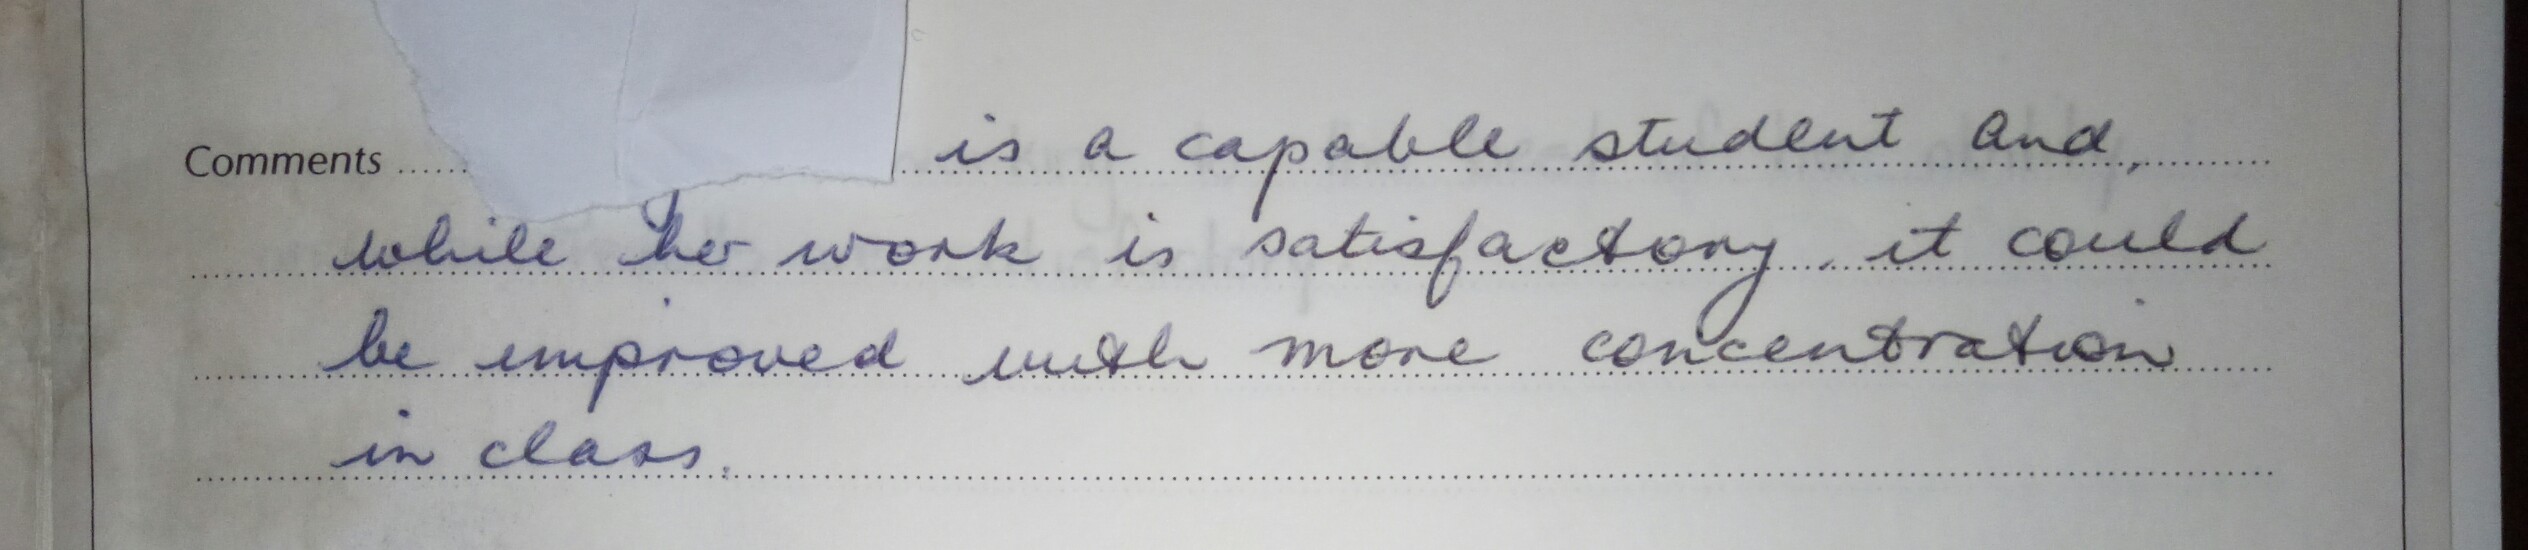 Comments ..... is a capable student and,
while her work is satisfactory, it could
be improved with more concentration
in class.